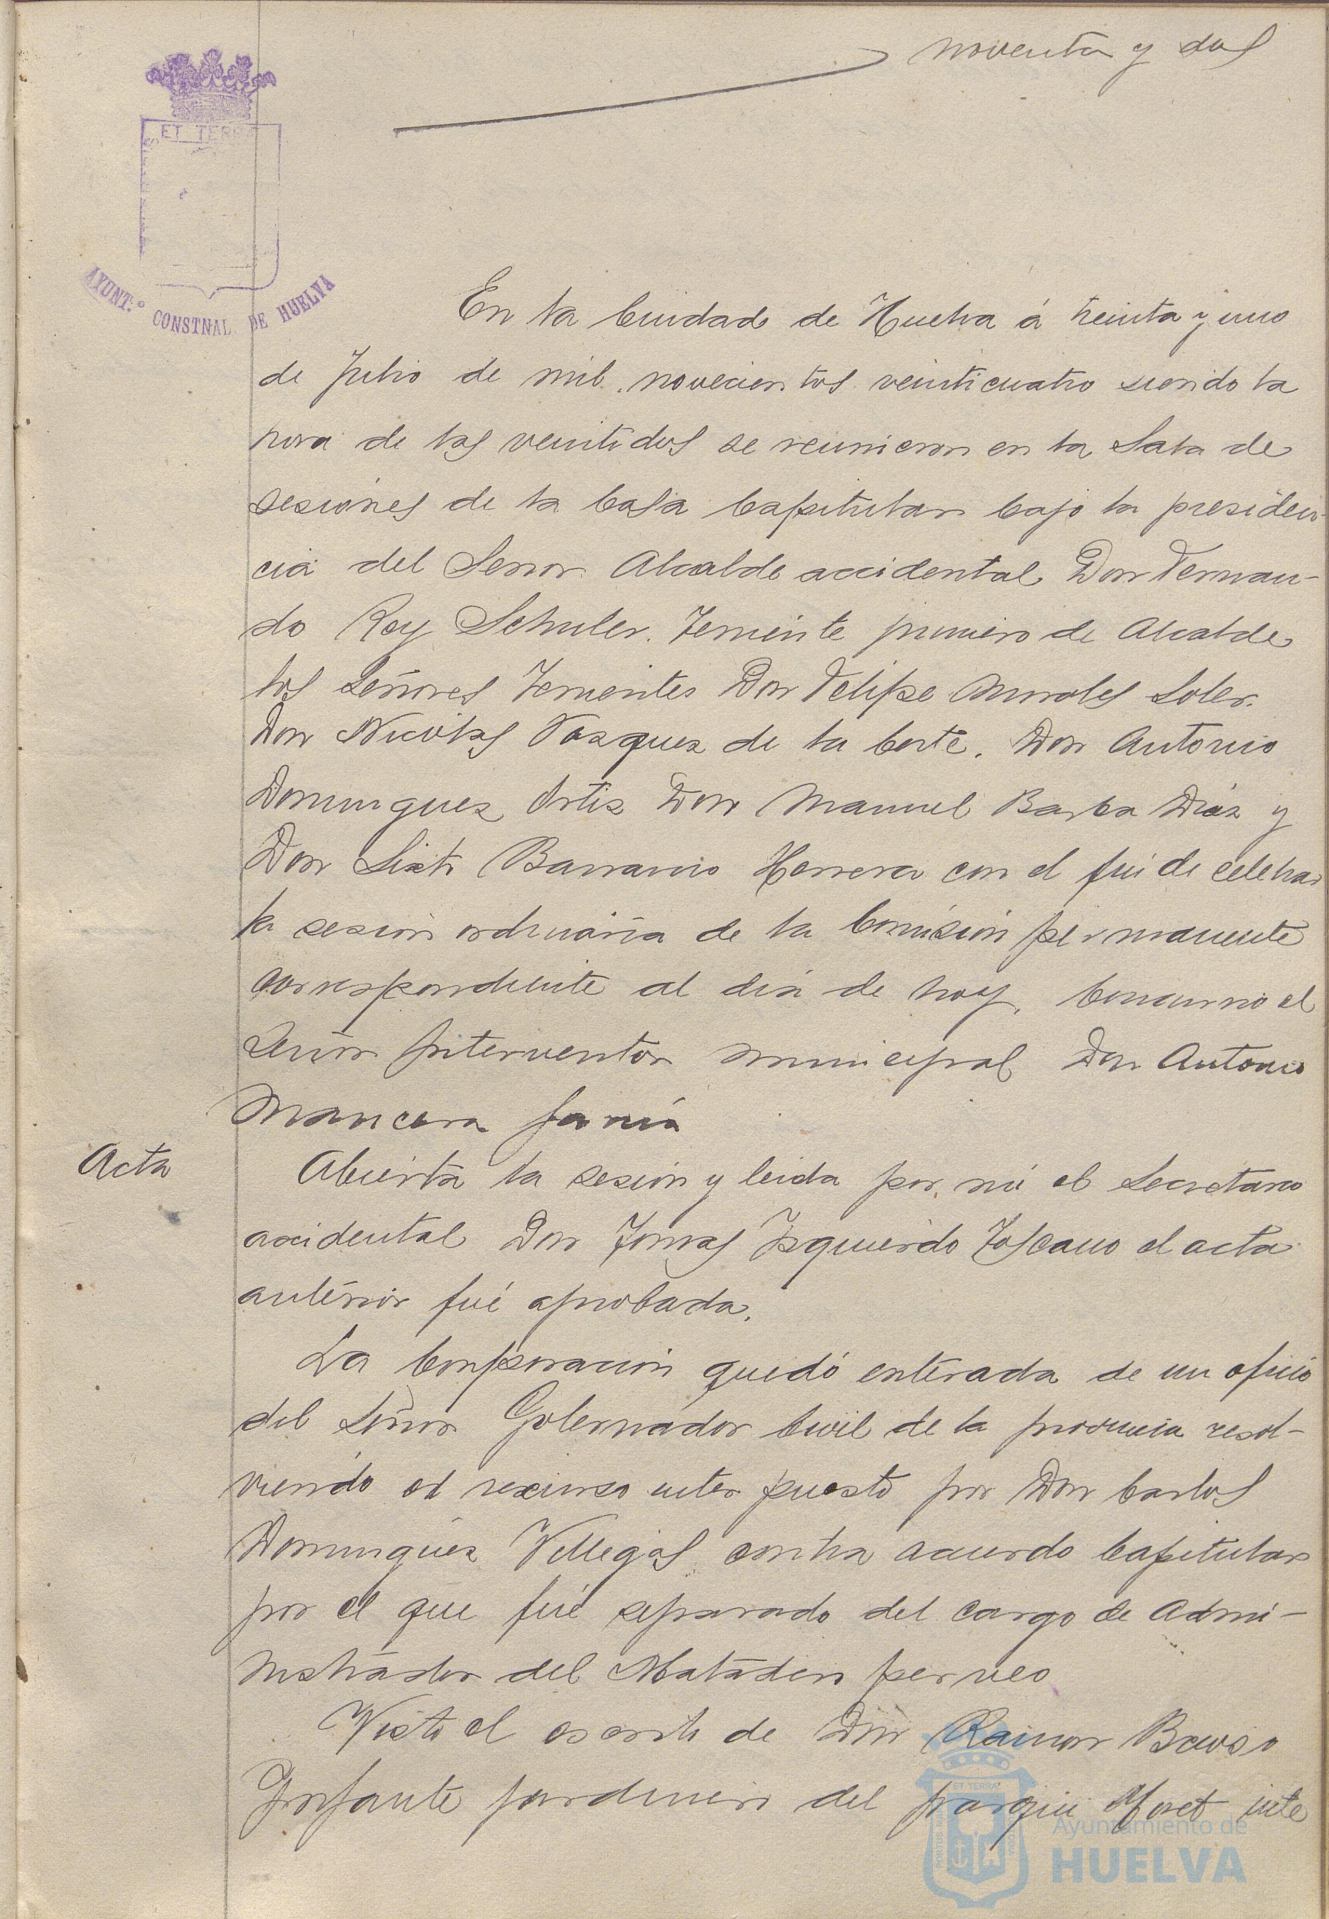 noventa y dos
ET TERRA
AYUNT.º CONSTNAL. DE HUELVA
En la Ciudad de Huelva á treinta y uno
de Julio de mil novecientos veinticuatro siendo la
hora de las veintidos se reunieron en la Sala de
sesiones de la Casa Capitular bajo la presiden-
cia del Señor Alcalde accidental Don Fernan-
do Rey Schuler. Teniente primero de Alcalde
los Señores Tenientes Don Felipe Morales Soler.
Don Nicolas Vazquez de la Corte. Don Antonio
Dominguez Ortiz Don Manuel Barba Diaz y
Don Sixto Barranco Herrera con el fin de celebrar
la sesión ordinaria de la Comisión permanente
correspondiente al dia de hoy. Concurrio el
Señor Interventor municipal Don Antonio
Mancera
Acta
Abierta la sesión y leida por mi el Secretario
accidental Don Tomas Izquierdo Toscano el acta
anterior fué aprobada.
La Corporación quedó enterada de un oficio
del Señor Gobernador Civil de la provincia resol-
viendo el recurso interpuesto por Don Carlos
Dominguez Villegas contra acuerdo Capitular
por el que fué separado del cargo de Admi-
nistrador del Matadero
Visto el escrito de Don Ramon
Infante jardinero del parque Moret inte
ET TERRA
Ayuntamiento de
HUELVA